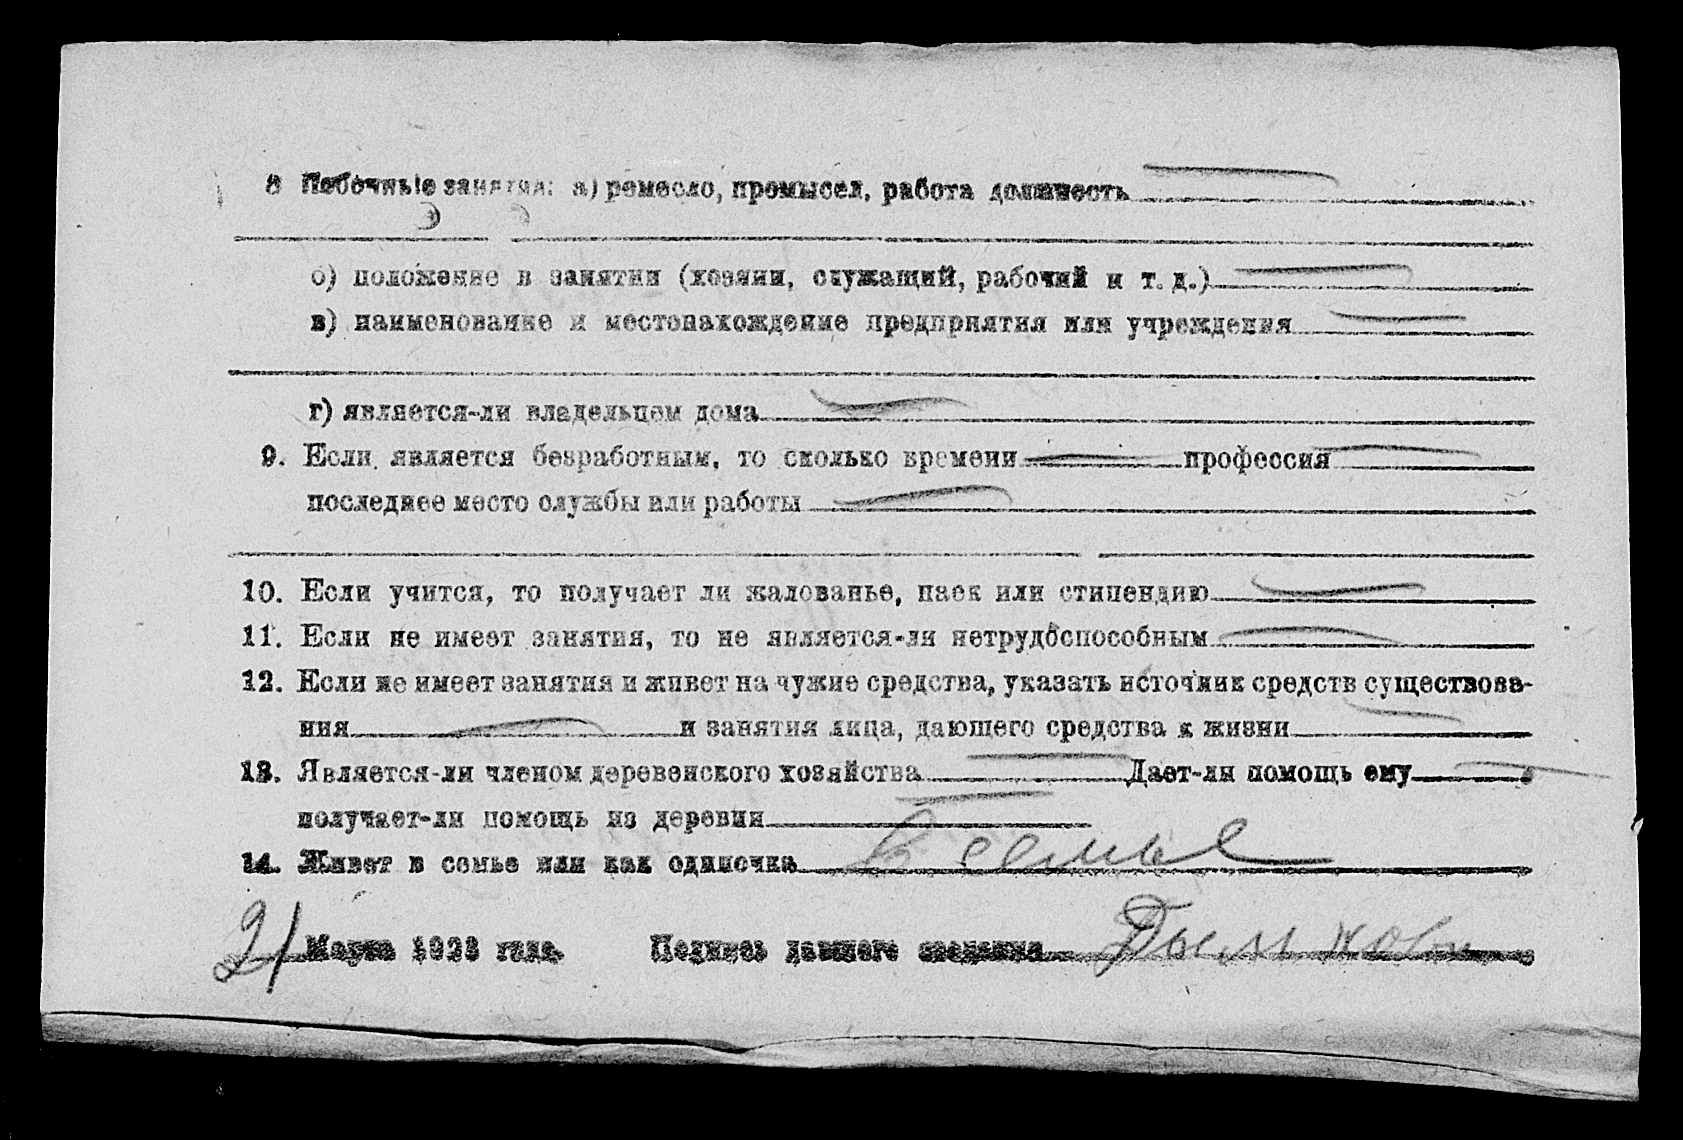 8 Побочные занятия: а) ремесло, промысел, работа должность
б) положение в занятии (хозяин, служащий, рабочий и т. д.)
в) наименование и местонахождение предприятия или учреждения
г) является-ли владельцем дома
9. Если является безработным, то сколько времени профессия
последнее место службы или работы
10. Если учится, то получает ли жалованье, паек или стипендию
11. Если не имеет занятия, то не является-ли нетрудоспособным
12. Если не имеет занятия и живет на чужие средства, указать источник средств существова-
ния и занятия лица, дающего средства к жизни
13. Является-ли членом деревенского хозяйства Дает-ли помощь ему
получает-ли помощь из деревни
14. Живет в семье или как одиночка В семье
21 Марта 1923 года. Подпись давшего сведения